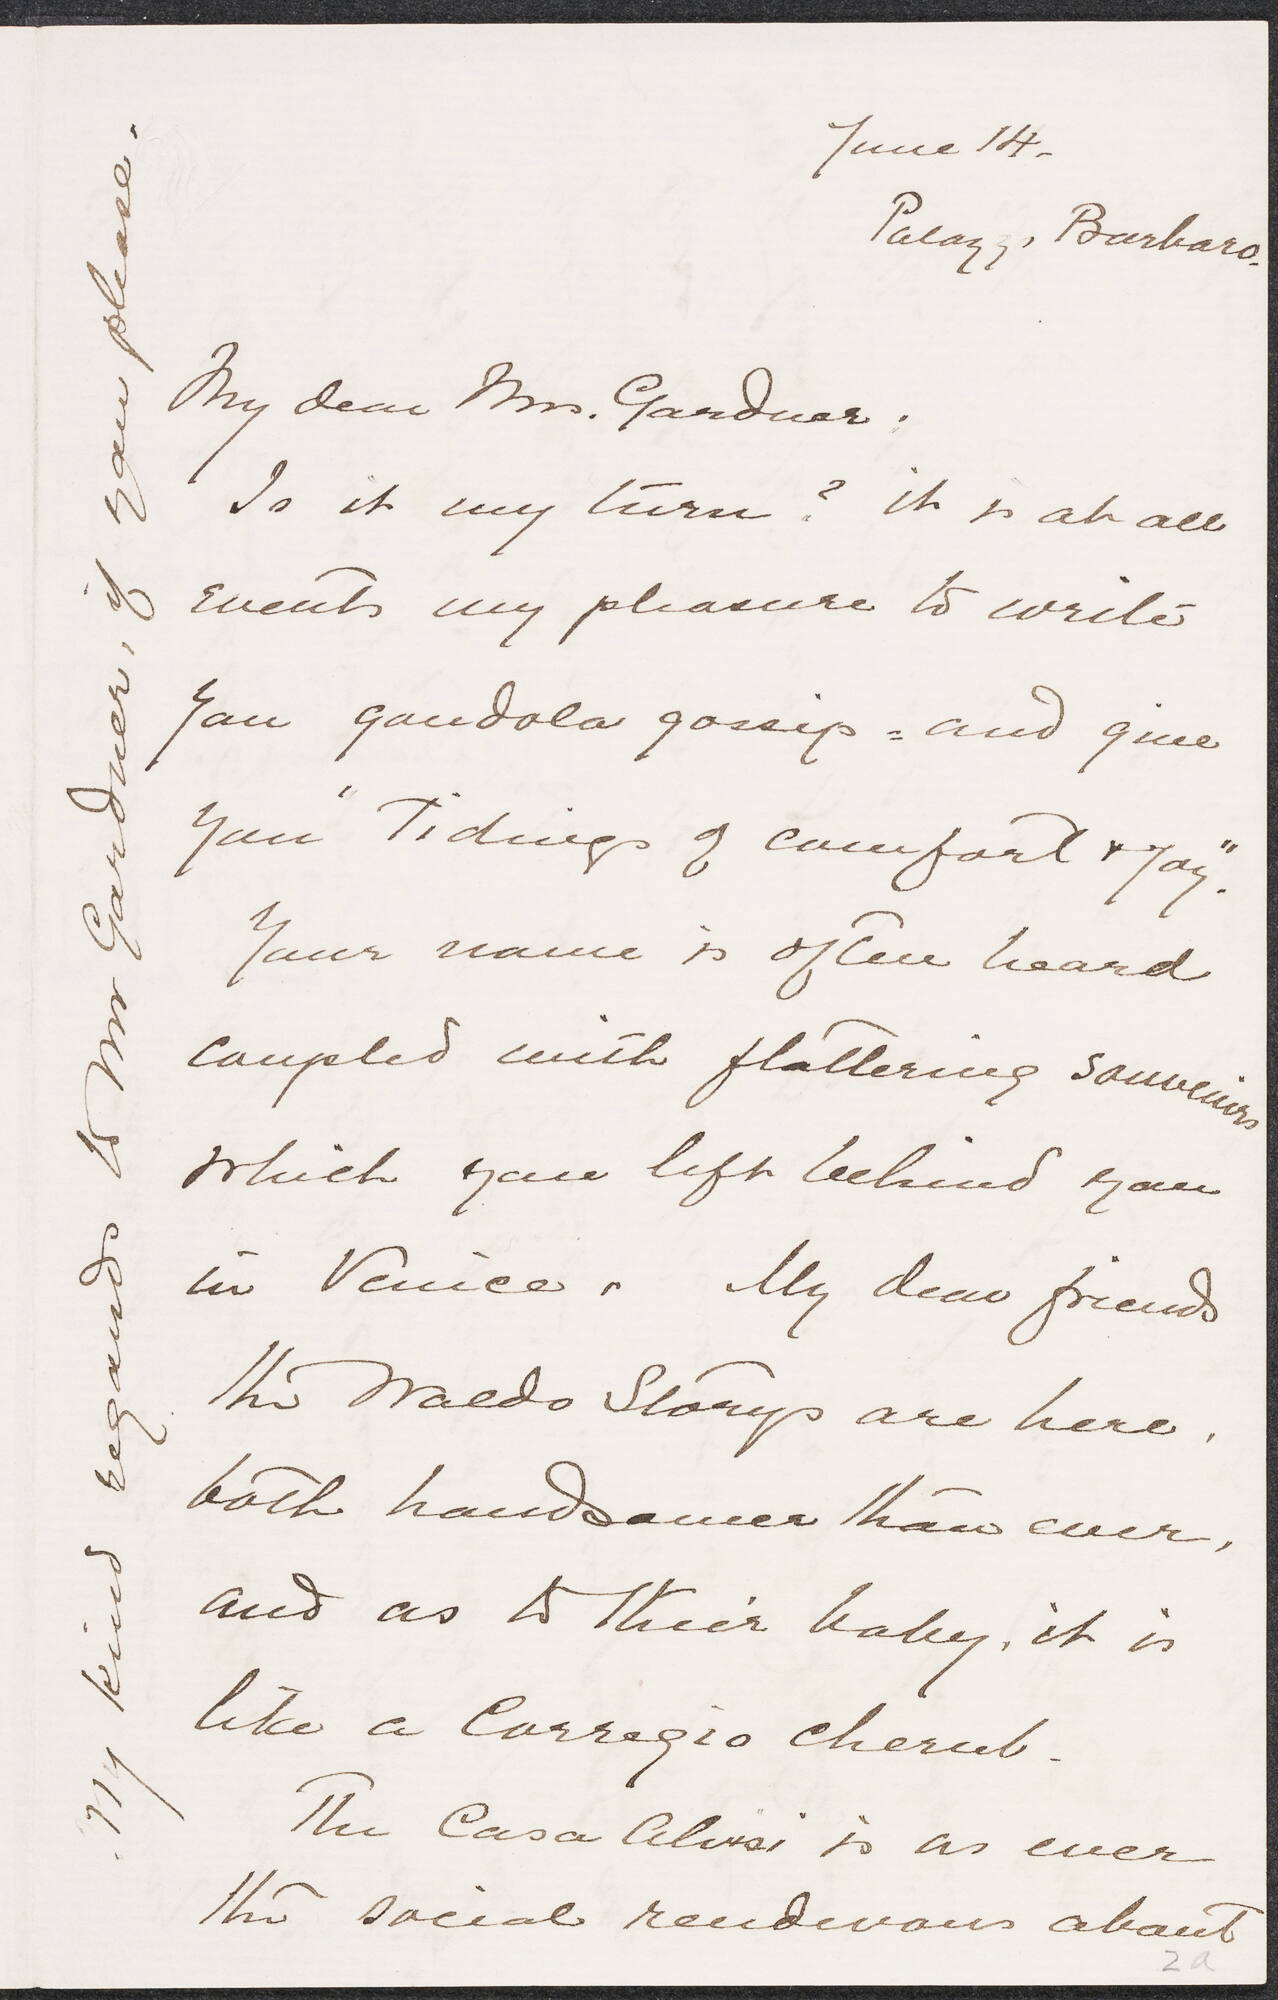 June 14.
Palazzo Barbaro.
My dear Mrs. Gardner.
Is it my turn? it is at all
events my pleasure to write
you gondola gossip = and give
you "Tidings of comfort & Joy".
Your name is often heard
coupled with flattering souvenirs
which you left behind you
in Venice. My dear friends
the Waldo Storys are here,
both handsomer than ever,
and as to their baby, it is
like a Corregio cherub.
The Casa Alvisi is as ever
the social rendevous about
My kind regards to Mr Gardner, if you please.
2a